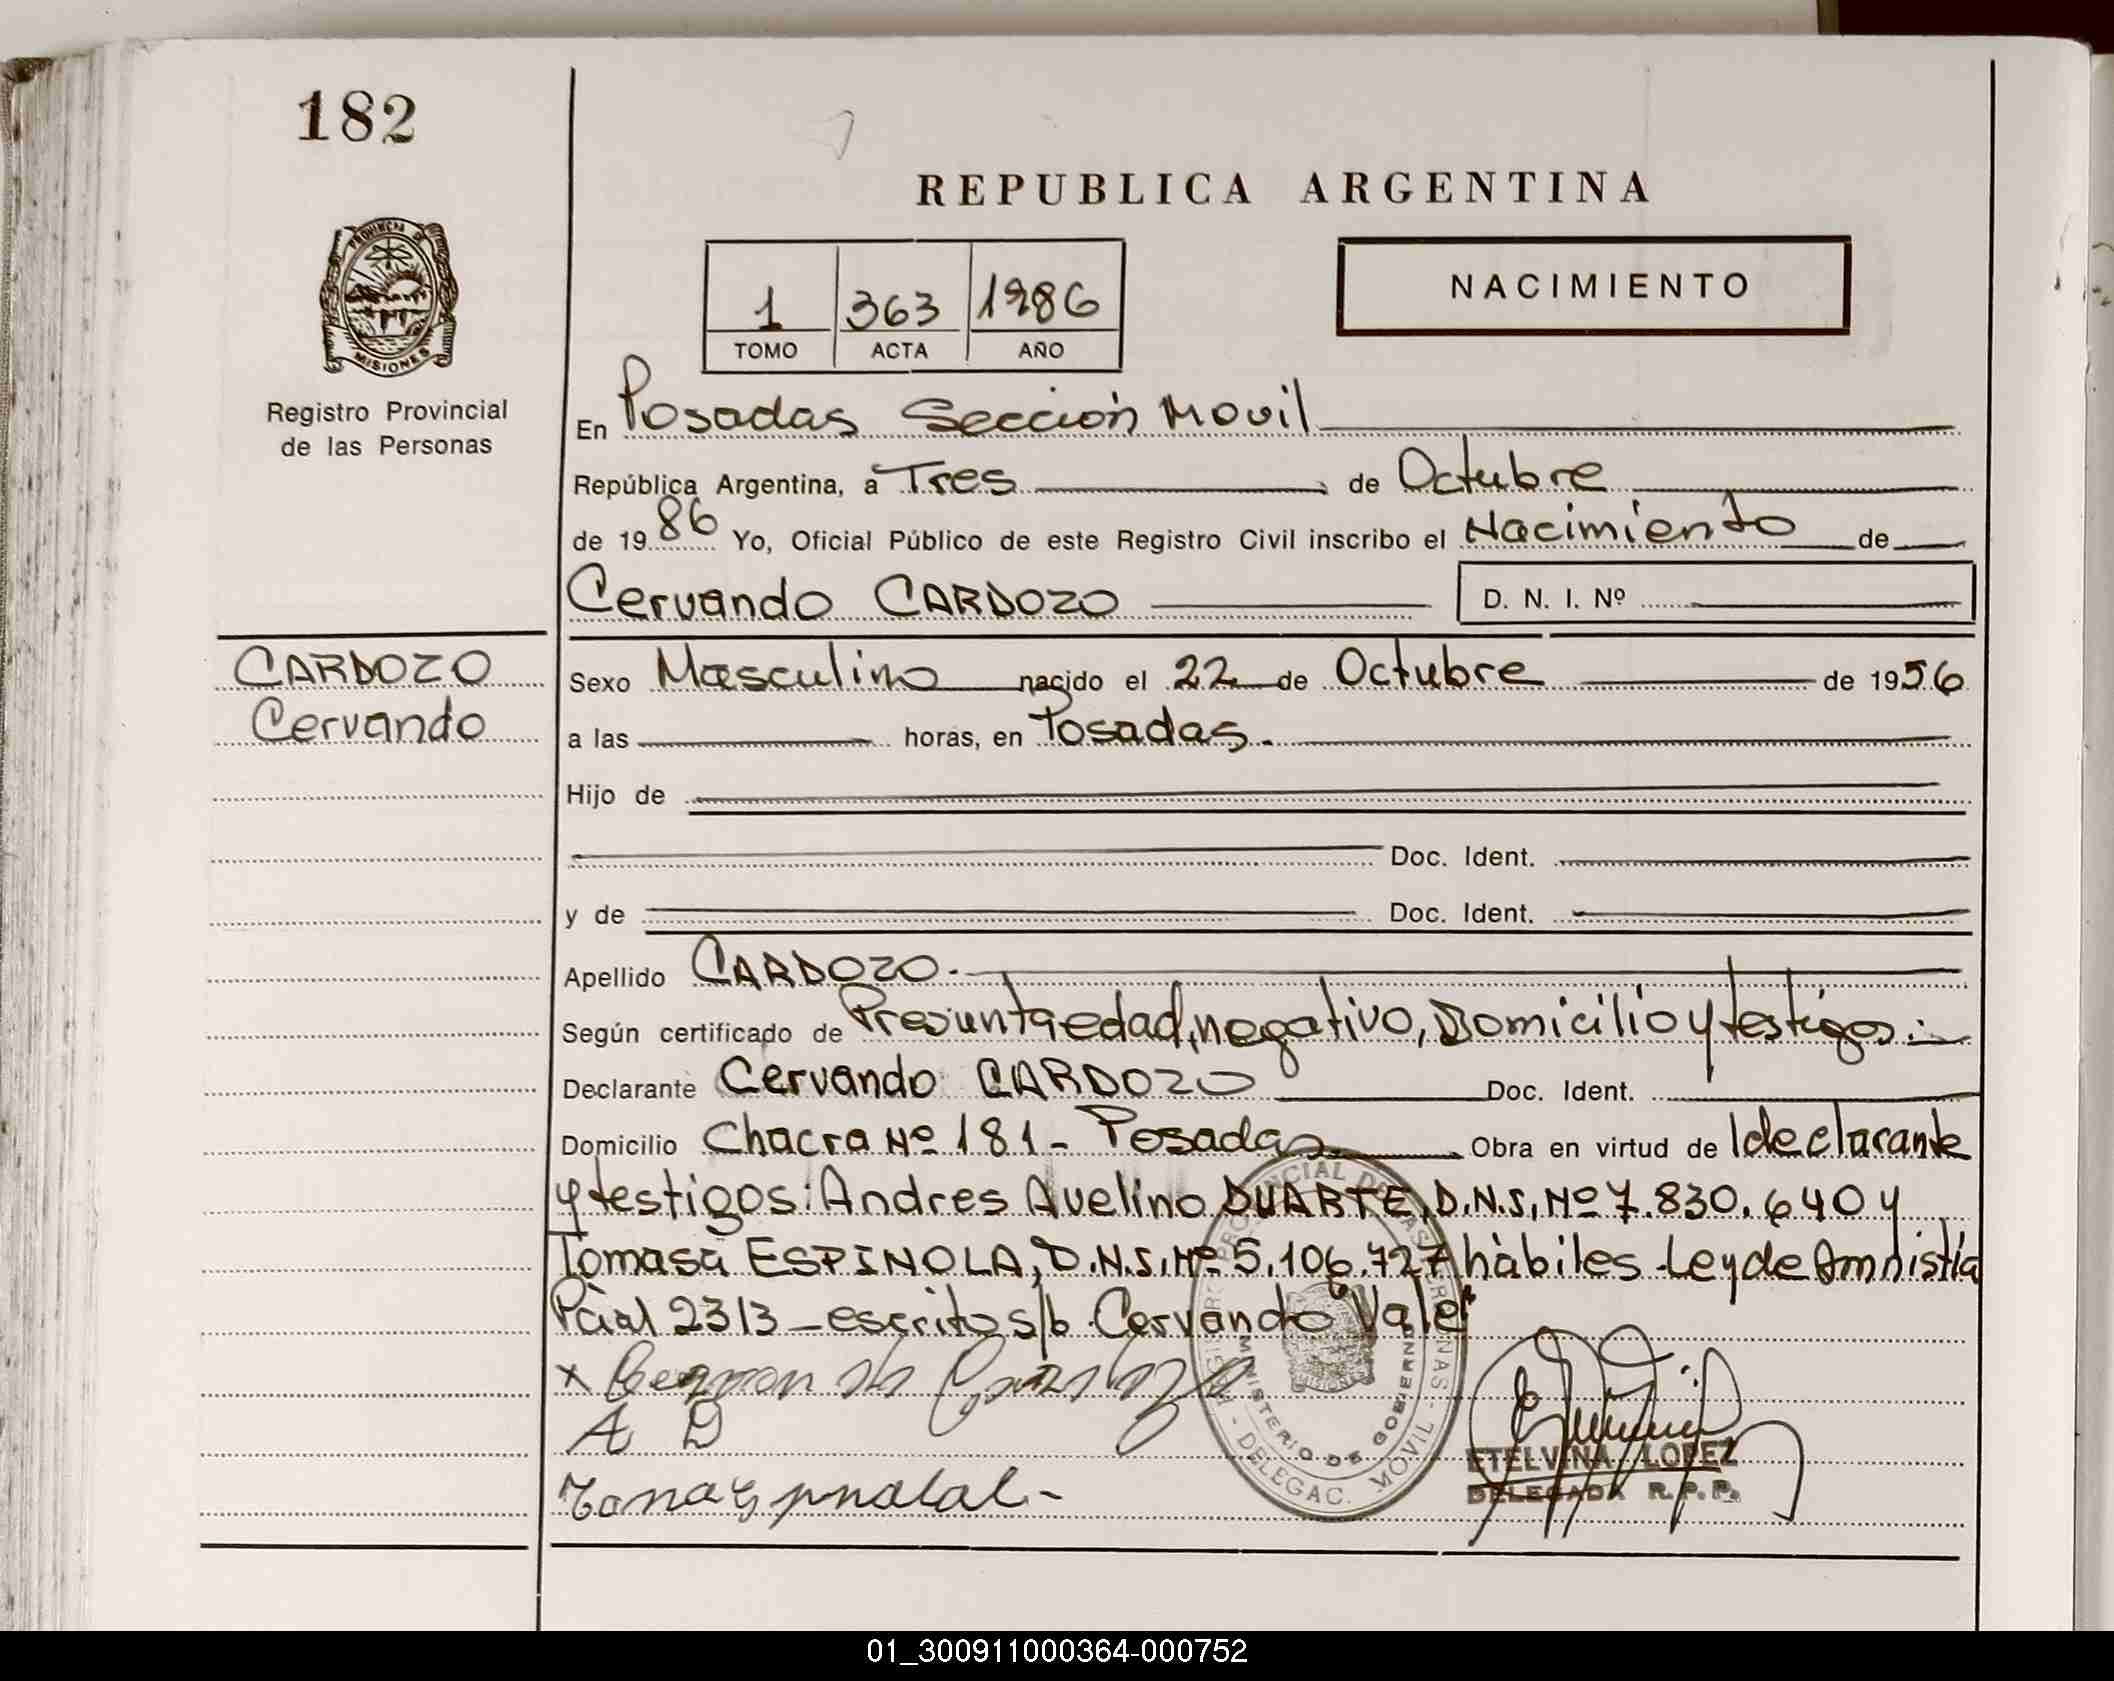 182
REPUBLICA ARGENTINA
PROVINCIA DE
MISIONES
Registro Provincial
de las Personas
1 363 1986
TOMO ACTA AÑO
NACIMIENTO
En Posadas Sección Movil
República Argentina, a Tres de Octubre
de 1986 Yo, Oficial Público de este Registro Civil inscribo el Nacimiento de
Cervando CARDOZO D. N. I. Nº
CARDOZO
Cervando
Sexo Masculino nacido el 22 de Octubre de 1956
a las horas, en Posadas.
Hijo de
Doc. Ident.
y de Doc. Ident.
Apellido CARDOZO.
Según certificado de Presunta edad, negativo, Domicilio y testigos.
Declarante Cervando CARDOZO Doc. Ident.
Domicilio Chacra Nº 181 - Posadas Obra en virtud de l declarante
y testigos: Andres Avelino DUARTE, D.N.I, Nº 7.830.640 y
Tomasa ESPINOLA, D.N.I. Nº 5.106.727 hàbiles - Ley de Amnistía
Pcial 2313 - escrito s/b Cervando "Vale"
x
A D
MINISTERIO DE GOBIERNO
DELEGAC. MOVIL
ETELVINA LOPEZ
DELEGADA R.P.P.
01_300911000364-000752